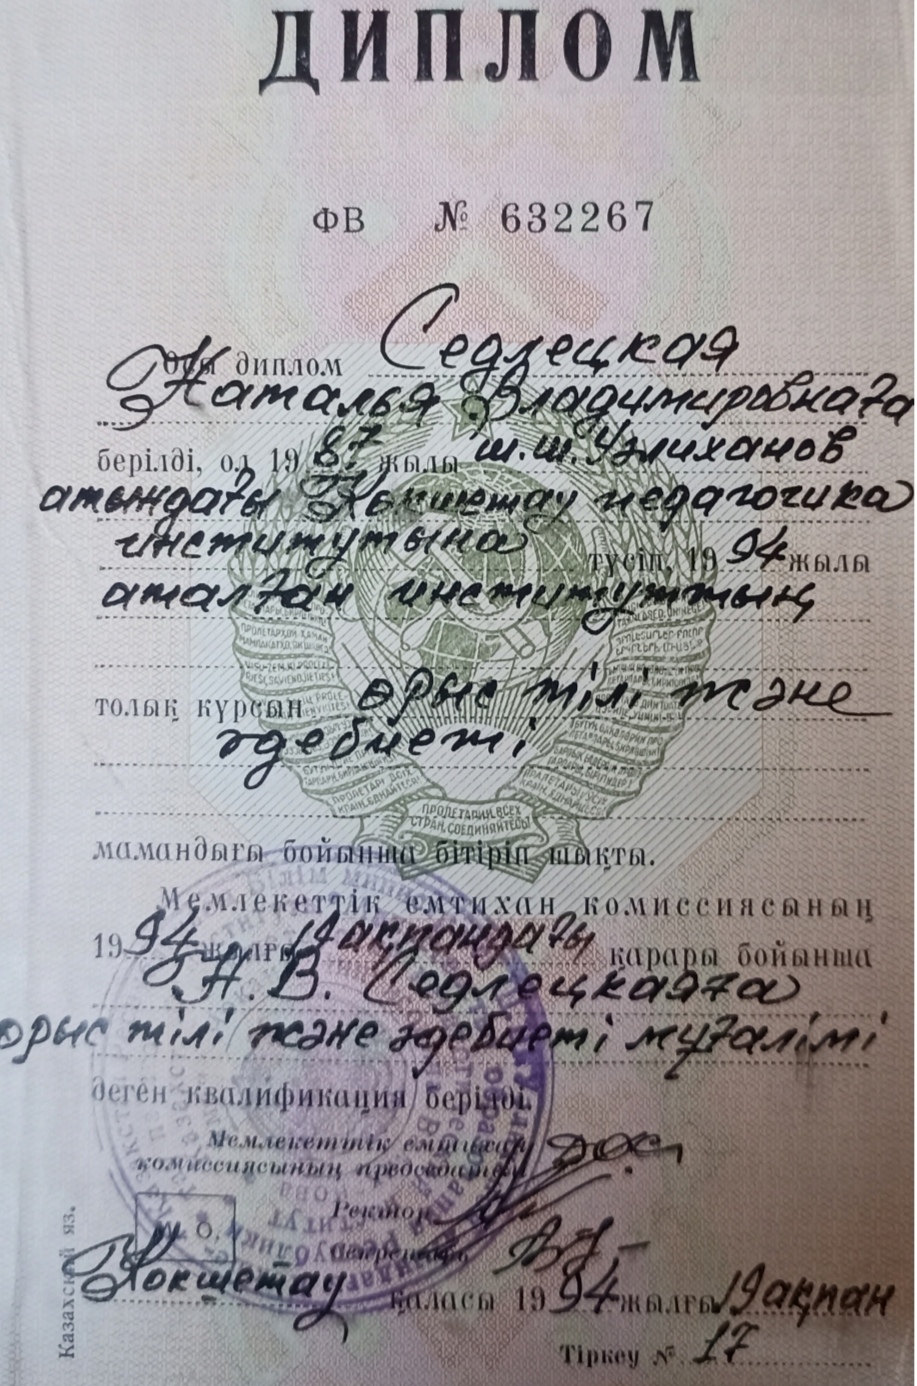 ДИПЛОМ
ФВ № 632267
Осы диплом Седлецкая
Наталья Владимировнаға
берілді, ол 1987 жылы Ш.Ш. Уәлиханов
атындағы Көкшетау педагогика
институтына түсіп, 1994 жылы
аталған институттың
толық курсын орыс тілі және
әдебиеті
ПРОЛЕТАРИИ ВСЕХ
СТРАН, СОЕДИНЯЙТЕСЬ!
мамандығы бойынша бітіріп шықты.
Мемлекеттік емтихан комиссиясының
1994 жылғы 19 ақпандағы қарары бойынша
Н.В. Седлецкаяға
орыс тілі және әдебиеті мұғалімі
деген квалификация берілді.
Мемлекеттік емтихан
комиссиясының председателі
Ректор
М. О.
Секретарь
Көкшетау қаласы 1994 жылғы 19 ақпан
Тіркеу № 17
Казахский яз.